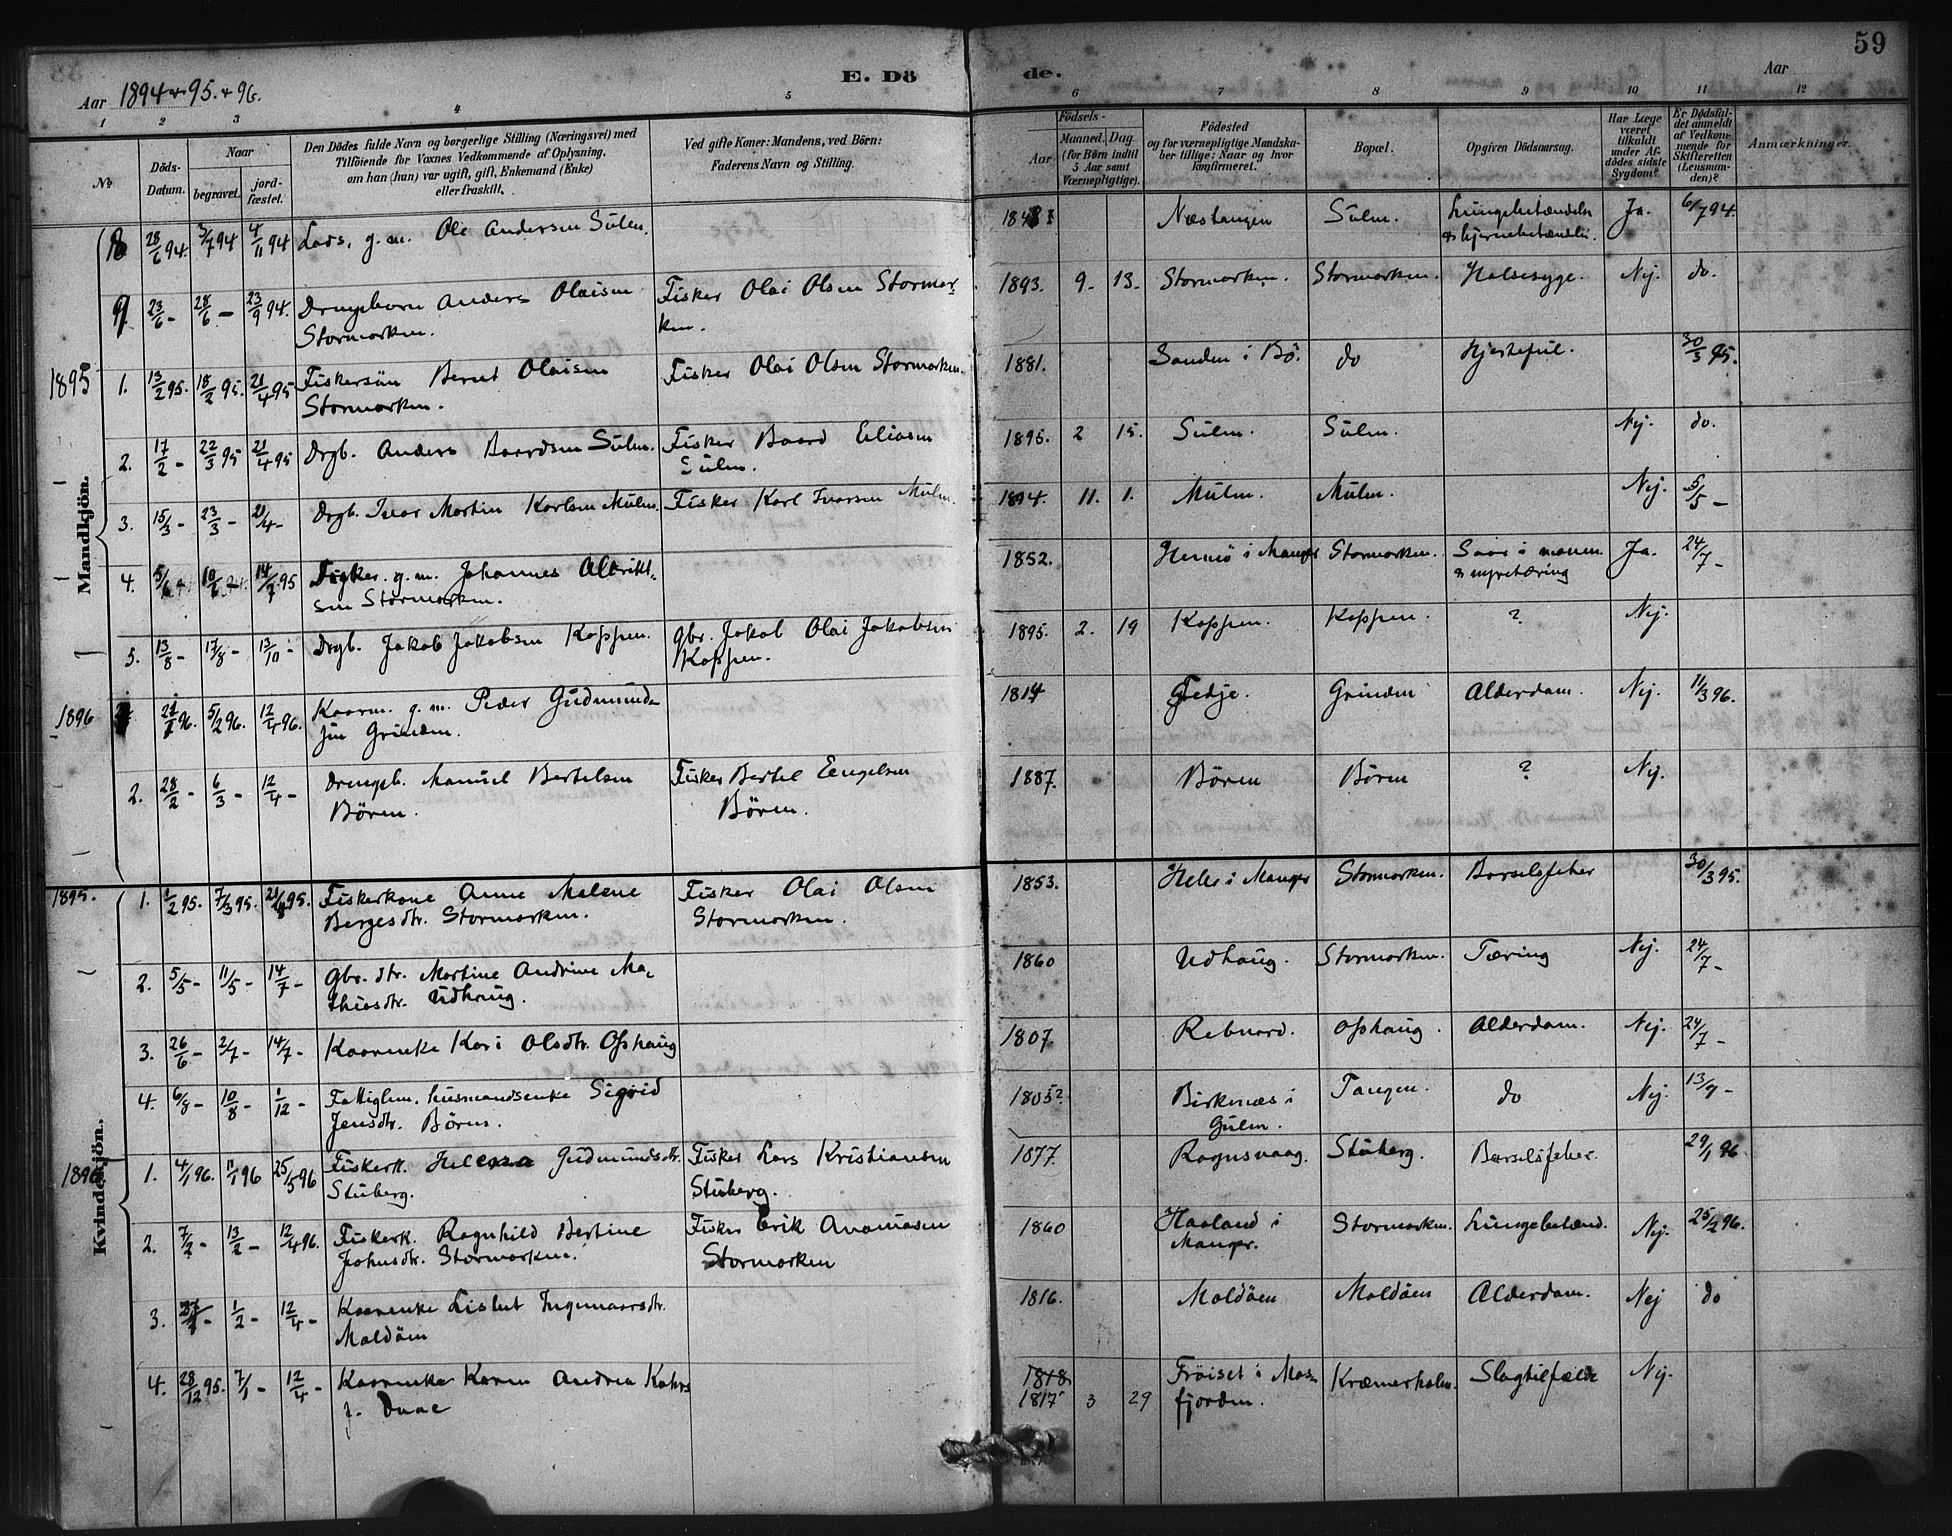 59
E. Dö de.
Aar 1894 + 95. + 96.
Aar
1 2 3 4 5 6 7 8 9 10 11 12
No
Döds-Datum.
Naar
begravet.
jord-fæstet.
Den Dödes fulde Navn og borgerlige Stilling (Næringsvei) med
Tilföiende for Voxnes Vedkommende af Oplysning,
om han (hun) var ugift, gift, Enkemand (Enke)
eller fraskilt.
Ved gifte Koner: Mandens, ved Börn:
Faderens Navn og Stilling.
Födsels-
Aar
Maaned. Dag.
(for Börn indtil
5 Aar samt
Værnepligtige).
Födested
og for værnepligtige Mandska-
ber tillige: Naar og hvor
konfirmeret.
Bopæl.
Opgiven Dödsaarsag.
Har Læge
været
tilkaldt
under Af-
dödes sidste
Sygdom?
Er Dödsfal-
det anmeldt
af Vedkom-
mende for
Skifteretten
(Lensman-
den)?
Anmærkninger.
Mandkjön.
8 28/6 94. 3/7 94 4/11 94 Lods, g. m. Ole Andersen Sulen. Næstangen Sulen. Lungebetændelse Ja. 6/7 94.
& hjernebetændelse.
9 23/6 - 28/6 - 23/9 94. Drengebarn Anders Olaisen Fisker Olai Olsen Stormar- 1893. 9. 13. Stormarken. Stormarken. Halsesyge. Nej. do.
Stormarken. ken.
1895 1. 13/2 95. 18/2 95. 21/4 95 Fiskersön Bernt Olaisen Fisker Olai Olsen Stormarken. 1881. Sanden i Bö. do Hjertefeil. 30/3 95.
Stormarken.
2. 17/2 - 22/3 95 21/4 95 Drgb. Anders Baardsen Sulen. Fisker Baard Eliasen 1895. 2 15. Sulen. Sulen. Nej. do.
Sulen.
3. 15/3 - 23/3 - 21/4 - Drgb. Ivar Martin Karlsen Mulen. Fisker Karl Ivarsen Mulen. 1894. 11. 1. Mulen. Mulen. Nej. 5/5 -
4. 5/6 10/6 14/7 95 Fisker. g. m. Johannes Albrikt- 1852. Hernö i Manger Stormarken. Saar i maven Ja. 24/7 -
sen Stormarken. & nyretæring
5. 13/8 - 17/8 - 13/10 - Drgb. Jakob Jakobsen Koppen. gbr. Jakob Olai Jakobsen 1895. 2. 19 Koppen. Koppen. ? Nej.
Koppen.
1896 5/2 96. 12/4 96. Kaarm. g. m. Peder Gudmund- 1814 Fedje. Grinden Alderdom. Nej. 11/3 96.
sen Grinden.
2. 28/2 - 6/3 - 12/4 - Drengeb. Manuel Bertelsen Fisker Bertel Eengelsen 1887. Bören Bören ? Nej.
Bören. Bören.
Kvindekjön.
1895. 1. 1/2 95. 7/3 95. 21/4 95. Fiskerkone Anne Malene Fisker Olai Olsen 1853. Helle i Manger Stormarken. Barselsfeber 30/3 95.
Bergesdtr. Stormarken. Stormarken.
2. 5/5 - 11/5 - 14/7 - gbr. dtr. Martine Andrine Ma- 1860 Udhaug. Stormarken. Tæring Nej. 24/7 -
thiasdtr. Udhaug.
3. 26/6 - 2/7 - 14/7 - Kaarenke Kari Olsdtr. Ophaug 1807 Rebnord. Ophaug. Alderdom. Nej. 24/7 -
4. 6/8 - 10/8 - 1/12 - Fattiglem, husmandsenke Sigrid 1805? Birkenæs i Tangen. do Nej. 13/9 -
Jensdtr. Bören. Gulen.
1896 1. 4/1 96. 11/1 96 25/5 96 Fiskerk. Helena Gudmundsdtr. Fisker Lars Kristiansen 1877. Ragnsvaag. Stuberg. Barselsfeber. 29/1 96
Stuberg. Stuberg.
2. 7/2 - 13/2 - 12/4 96. Fiskerk. Ragnhild Bertine Fisker Erik Ananiasen 1860 Haaland i Stormarken. Lungebetænd. Nej. 25/2 96.
Johnsdtr. Stormarken. Stormarken Manger.
3. 1/2 - 12/4 - Kaarenke Lisbet Ingemaarsdtr. 1816. Maldöen Maldöen Alderdom. Nej do
Maldöen
4. 28/12 95. 7/1 - 12/4 - Kaarenke Karen Andrea Kahrs 1818. Fröiset i Mas- Kræmmerholm. Slagtilfælde Nej.
f. Daae 1817 3 29 fjorden.